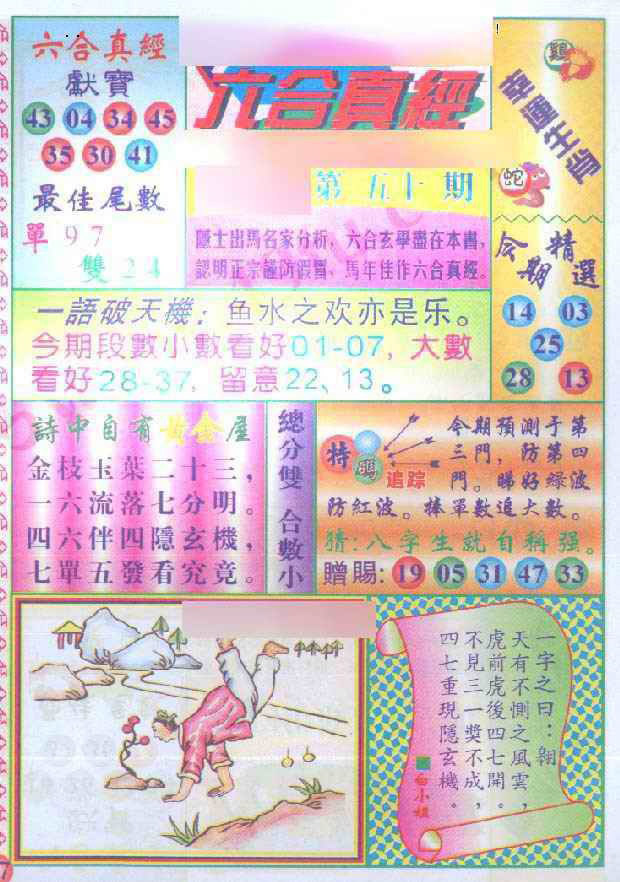 六合真經
獻寶
43 04 34 45
35 30 41
最佳尾數
單97
雙24
六合真經
第五十期
隱士出馬名家分析，六合玄學盡在本書，
認明正宗謹防假冒，馬年佳作六合真經。
雞
幸運生肖
蛇
今期精選
14 03
25
28 13
一語破天機：鱼水之欢亦是乐。
今期段數小數看好01-07，大數
看好28-37，留意22、13。
詩中自有黃金屋
金枝玉葉二十三，
一六流落七分明。
四六伴四隱玄機，
七單五發看究竟。
總分雙 合數小
特碼追踪
今期預測于第
三門，防第四
門。睇好绿波
防紅波。棒單數追大數。
猜：八字生就自稱强。
贈賜：19 05 31 47 33
一字之曰：翱
天有不惻之風雲，
虎前虎後四七開。
不見三一獎不成，
四七重現隱玄機。
白小姐